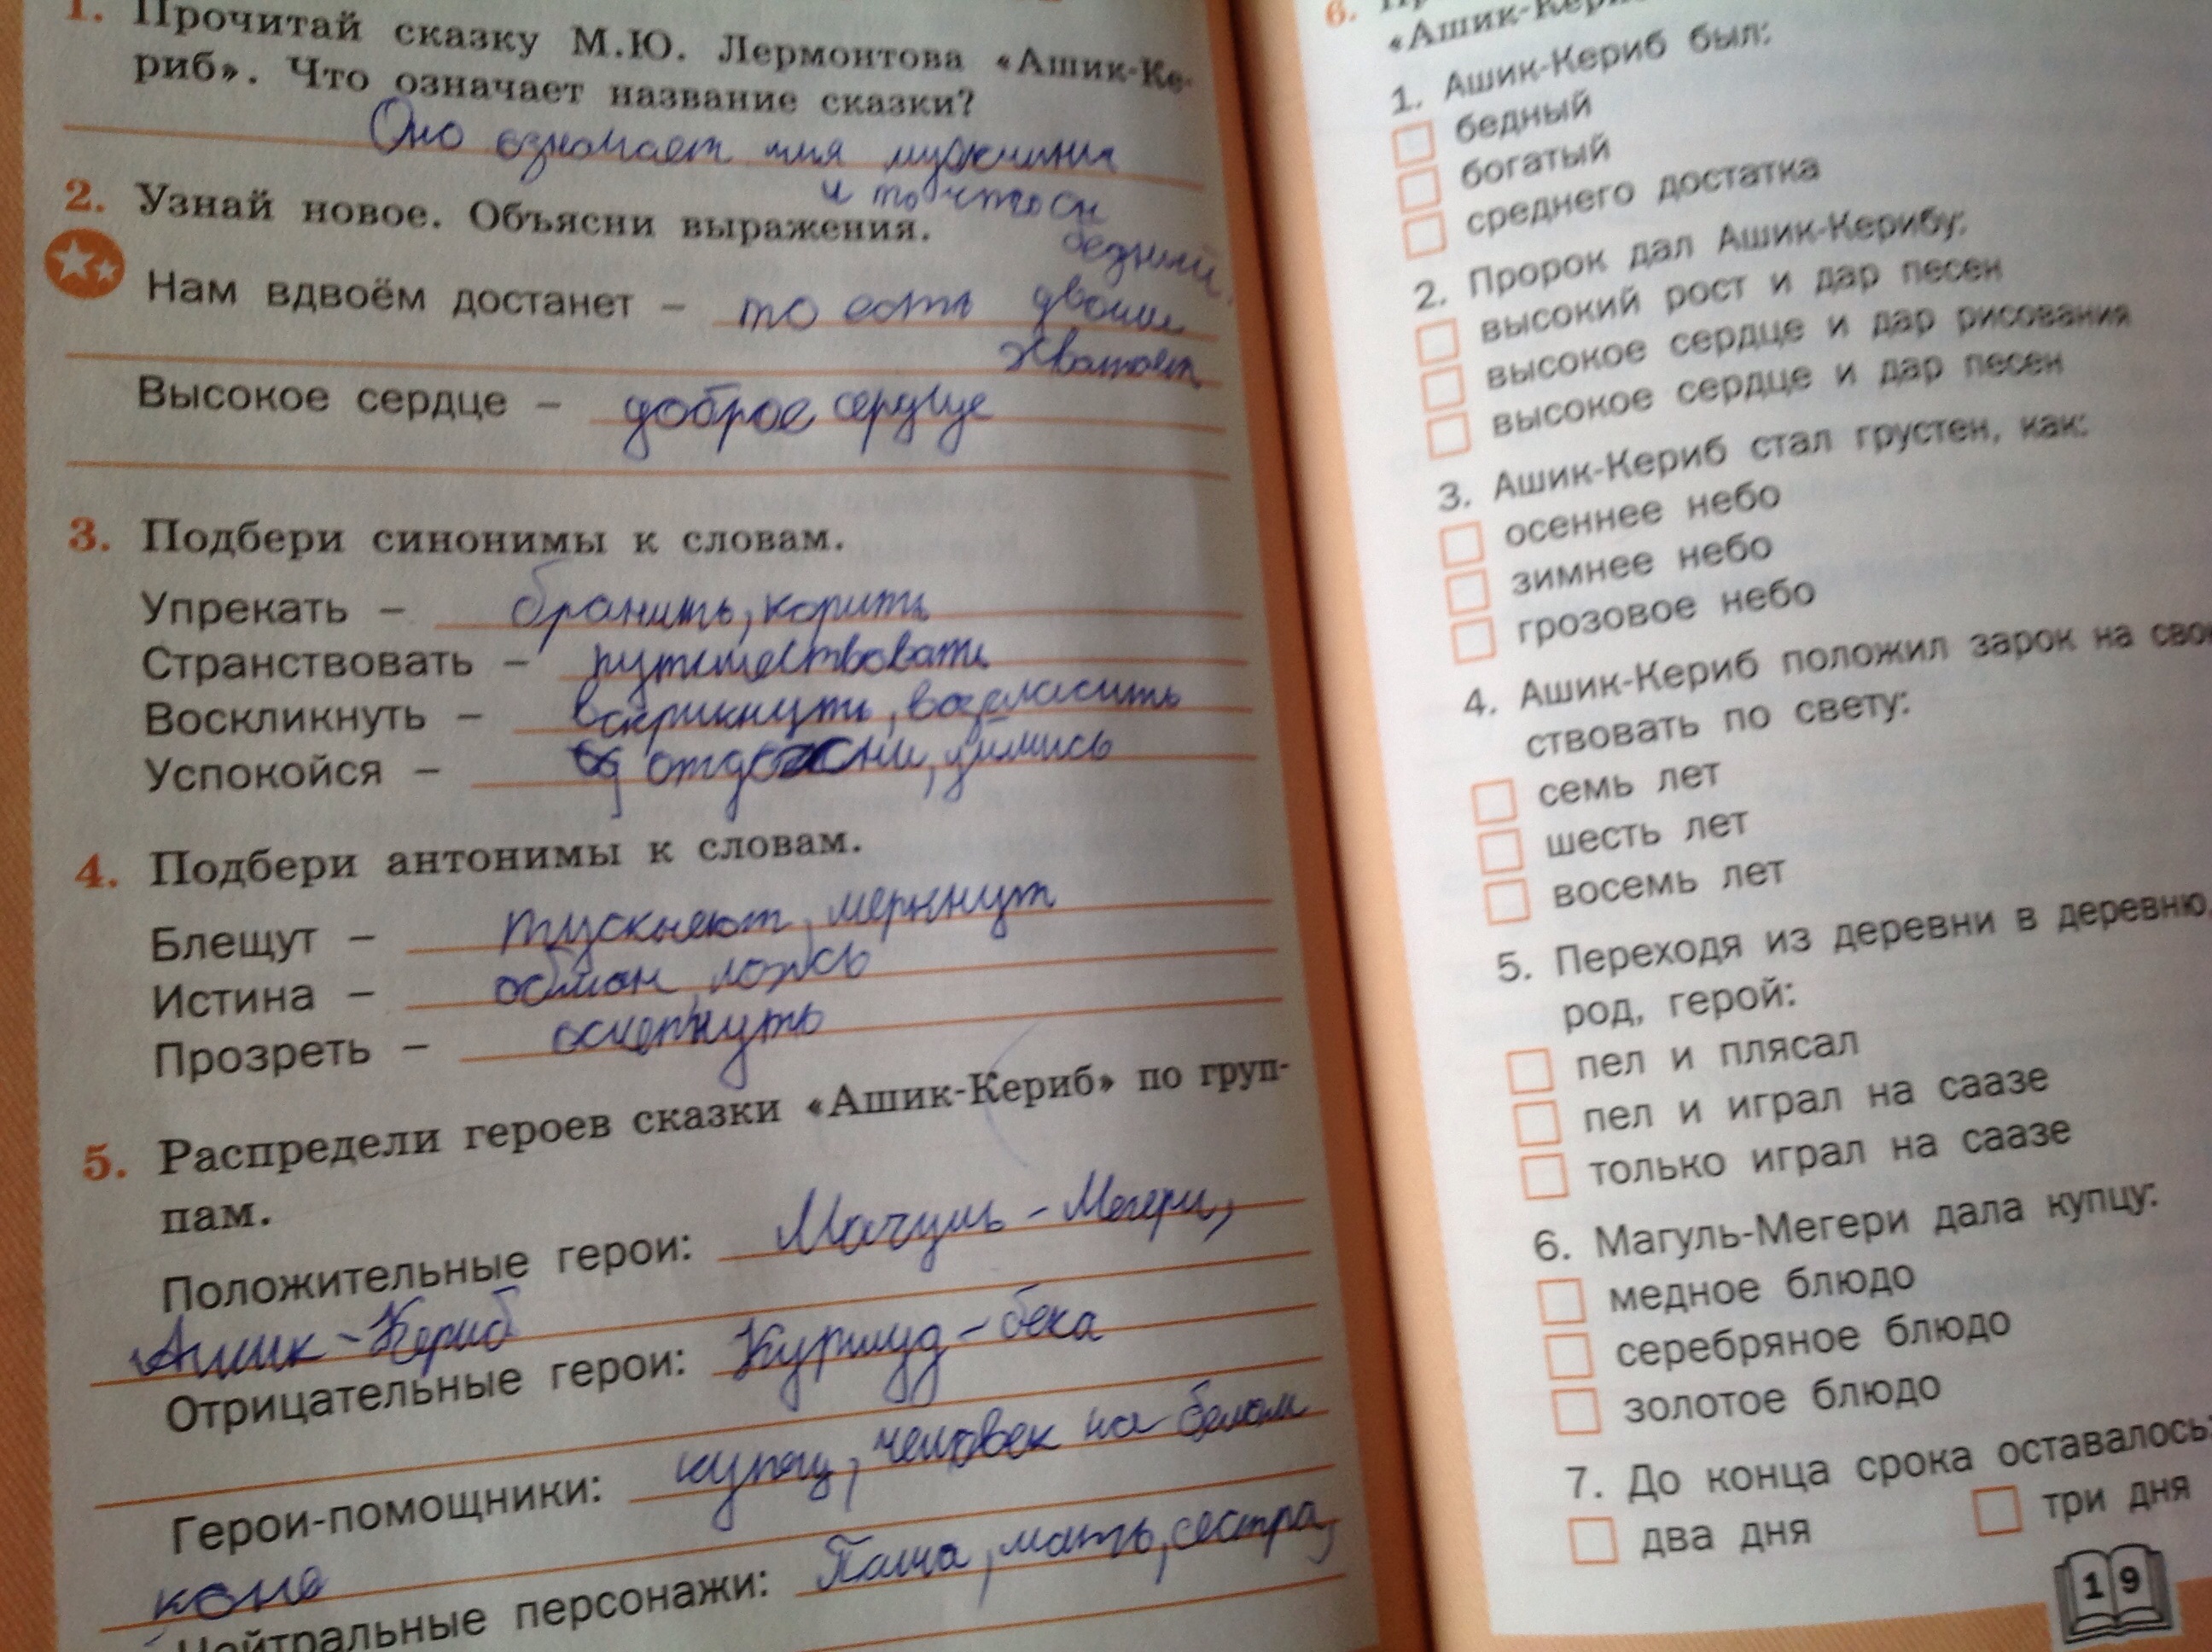 1. Прочитай сказку М.Ю. Лермонтова «Ашик-Ке-
риб». Что означает название сказки?
Оно означает имя мужчины
и то что он
бедный.
2. Узнай новое. Объясни выражения.
Нам вдвоём достанет – то есть двоим
хватает
Высокое сердце – доброе сердце
3. Подбери синонимы к словам.
Упрекать – бранить, корить
Странствовать – путешествовать
Воскликнуть – вскрикнуть, возгласить
Успокойся – отдохни, уймись
4. Подбери антонимы к словам.
Блещут – тускнеют, меркнут
Истина – обман, ложь
Прозреть – ослепнуть
5. Распредели героев сказки «Ашик-Кериб» по груп-
пам.
Положительные герои: Магуль-Мегери,
Ашик-Кериб
Отрицательные герои: Куршуд-бека
Герои-помощники: купец, человек на белом
коне
Нейтральные персонажи: Паша, мать, сестра,
6.
«Ашик-Кериб
1. Ашик-Кериб был:
бедный
богатый
среднего достатка
2. Пророк дал Ашик-Керибу:
высокий рост и дар песен
высокое сердце и дар рисования
высокое сердце и дар песен
3. Ашик-Кериб стал грустен, как:
осеннее небо
зимнее небо
грозовое небо
4. Ашик-Кериб положил зарок на
ствовать по свету:
семь лет
шесть лет
восемь лет
5. Переходя из деревни в деревню,
род, герой:
пел и плясал
пел и играл на саазе
только играл на саазе
6. Магуль-Мегери дала купцу:
медное блюдо
серебряное блюдо
золотое блюдо
7. До конца срока оставалось:
два дня три дня
19